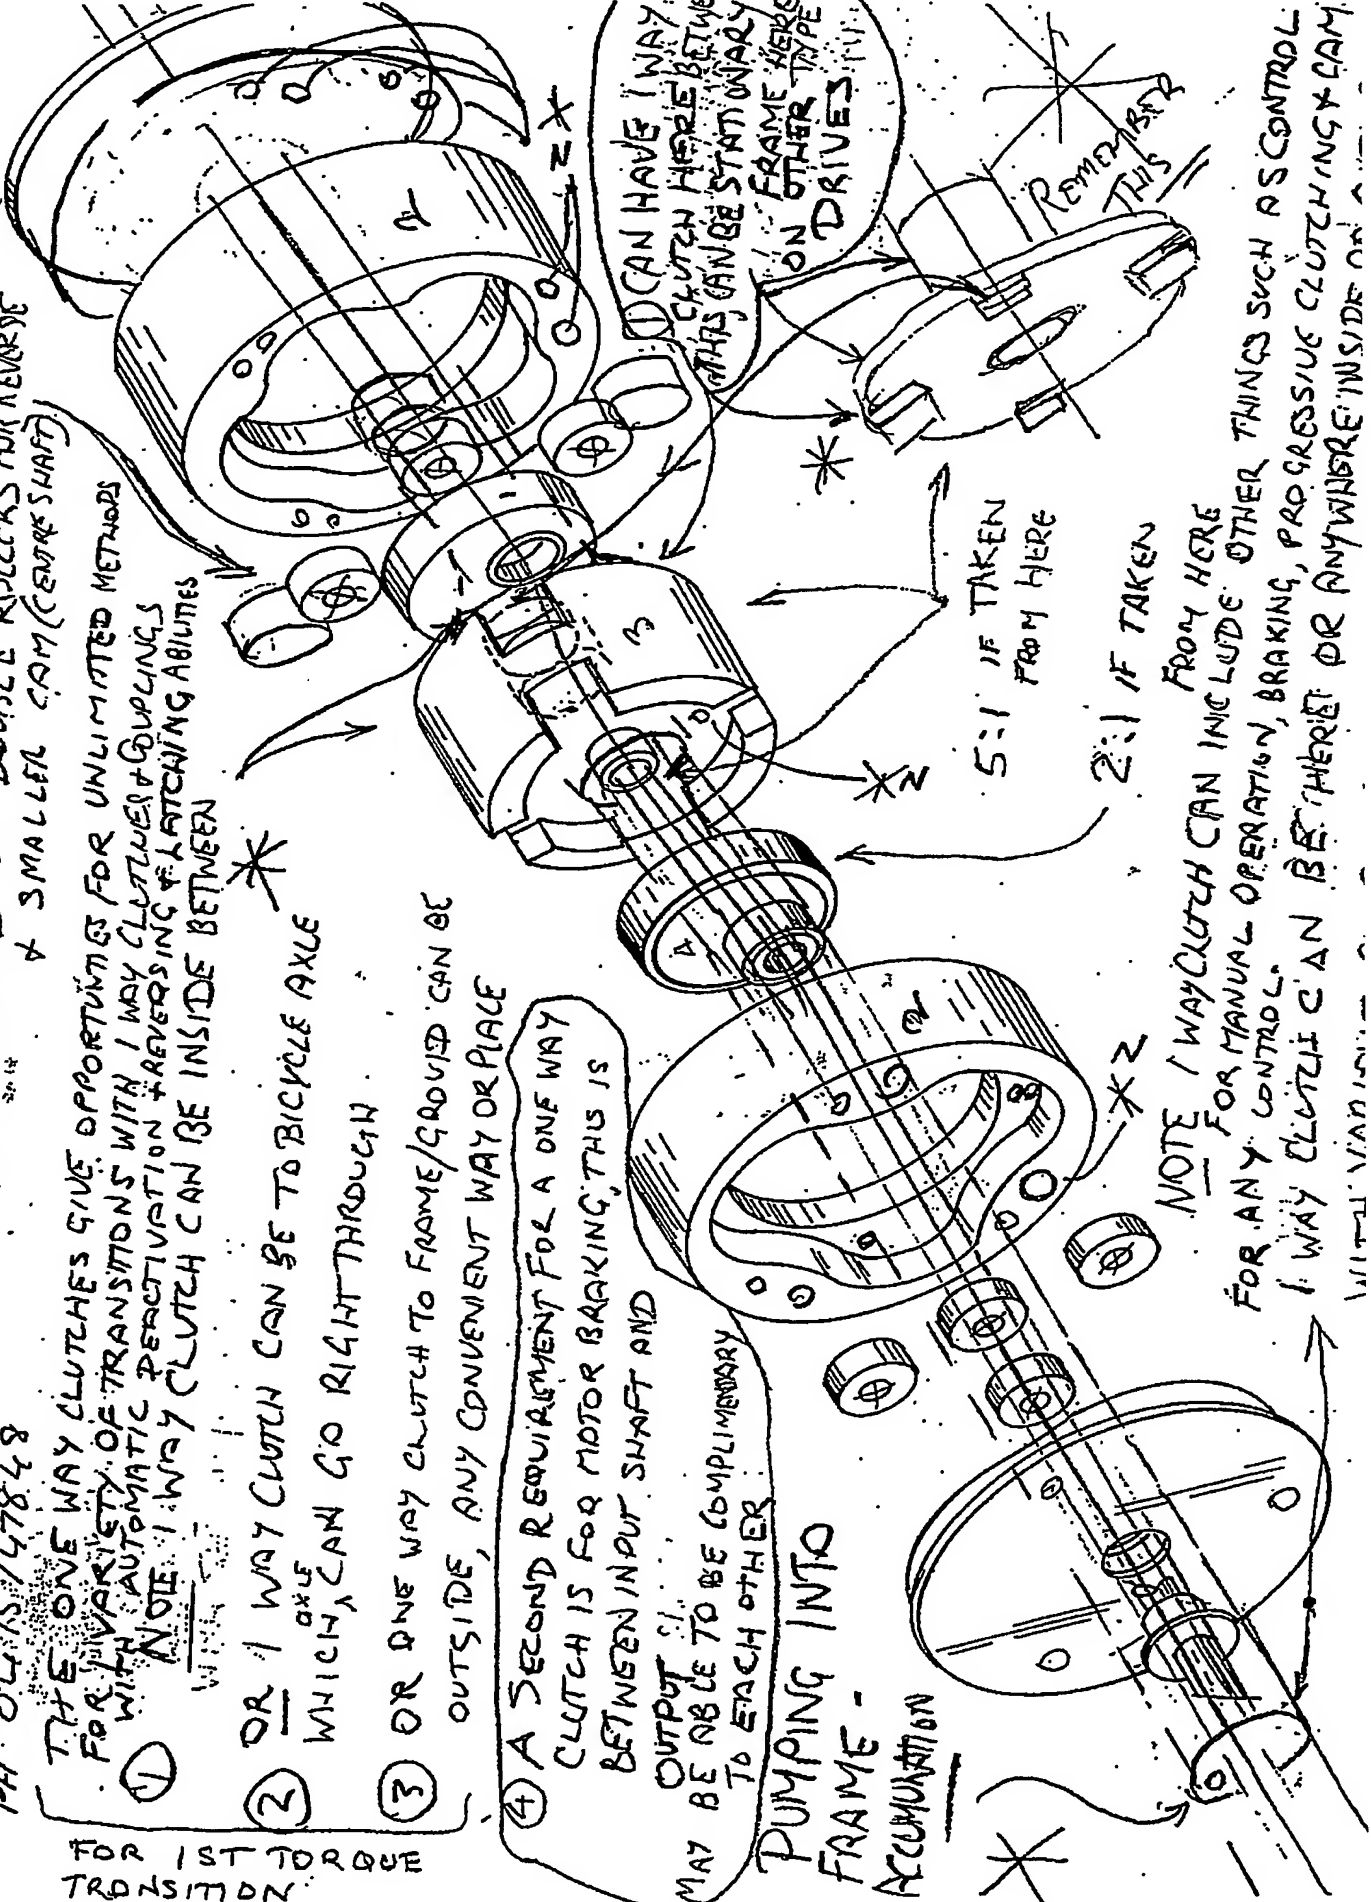 & SMALLER CAM (CENTRE SHAFT)
THE ONE WAY CLUTCHES GIVE OPPORTUNITIES FOR UNLIMITED METHODS
FOR VARIETY OF TRANSITIONS WITH 1 WAY CLUTCHES & COUPLINGS
WITH AUTOMATIC DEACTIVATION + REVERSING & LATCHING ABILITIES
① NOTE 1 WAY CLUTCH CAN BE INSIDE BETWEEN
② OR 1 WAY CLUTCH CAN BE TO BICYCLE AXLE
WHICH AXLE CAN GO RIGHT THROUGH
③ OR ONE WAY CLUTCH TO FRAME/GROUND CAN BE
OUTSIDE, ANY CONVENIENT WAY OR PLACE
FOR 1ST TORQUE
TRANSITION
④ A SECOND REQUIREMENT FOR A ONE WAY
CLUTCH IS FOR MOTOR BRAKING, THIS IS
BETWEEN INPUT SHAFT AND
OUTPUT
MAY BE ABLE TO BE COMPLIMENDARY
TO EACH OTHER
PUMPING INTO
FRAME -
ACCUMURATION
① CAN HAVE 1 WAY
CLUTCH HERE
THIS CAN BE STATIONARY
FRAME HERE
ON OTHER TYPE
DRIVES
REMEMBER
THIS
5:1 IF TAKEN
FROM HERE
2:1 IF TAKEN
FROM HERE
NOTE 1 WAY CLUTCH CAN INCLUDE OTHER THINGS SUCH AS CONTROL
FOR MANUAL OPERATION, BRAKING, PROGRESSIVE CLUTCHING & CAM
FOR ANY CONTROL.
1 WAY CLUTCH CAN BE THERE OR ANYWHERE INSIDE OR
2
1
3
4
2
*2
*2
*2